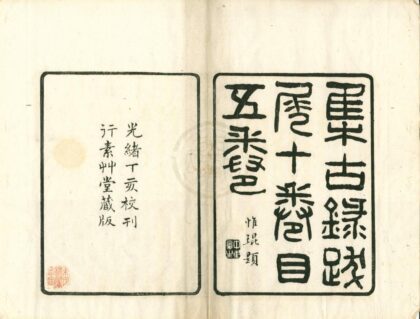 集古錄跋
尾十卷目
五卷
惟琨題
光緒丁亥校刊
行素艸堂藏版